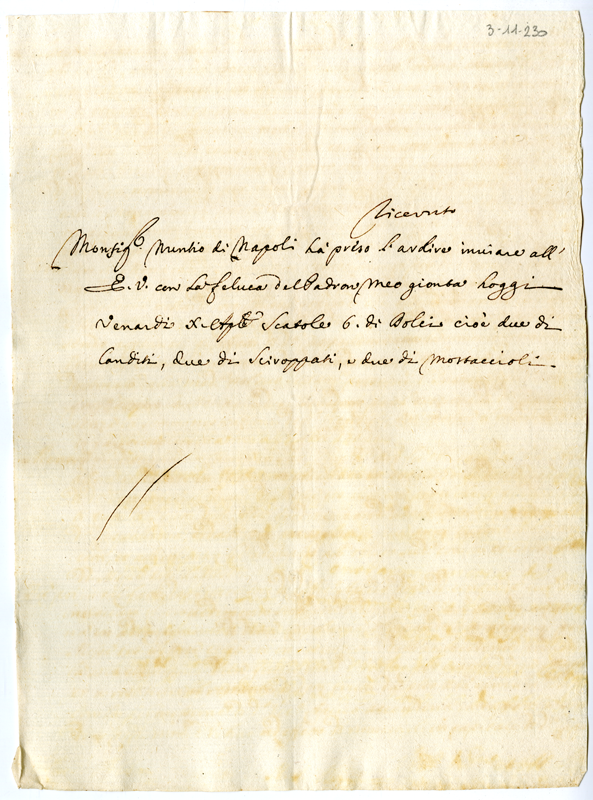 3-11-230
Ricevuto
Monsig.r Nuntio di Napoli hà preso l'ardire inviare all'
E. V. con la feluca del Padron Meo gionta hoggi
Venardi X. Scatole 6. di Dolci cioè due di
Canditi, due di Sciroppati, e due di Mostaccioli.